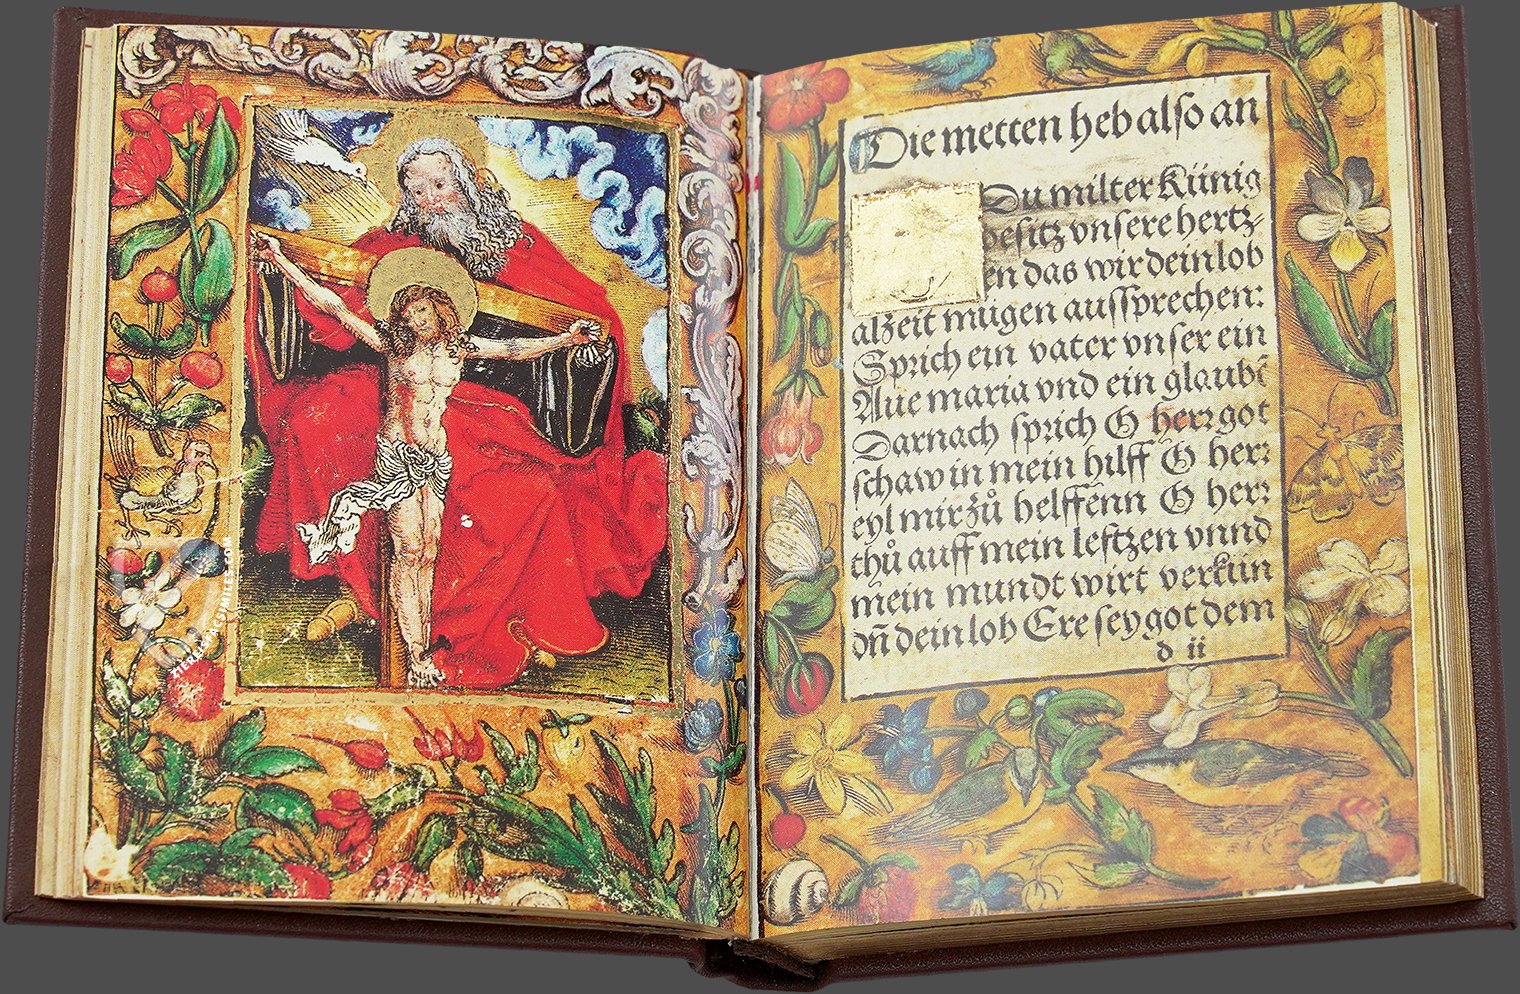 Die metten heb also an
Du milter Künig
besitz vnsere hertz⸗
en das wir dein lob
alzeit mügen aussprechen:
Sprich ein vater vnser ein
Aue maria vnd ein glaubē
Darnach sprich O herr got
schaw in mein hilff O herr
eyl mir zů helffenn O herr
thů auff mein leftzen vnnd
mein mundt wirt verkün
dn̄ dein lob Ere sey got dem
d ii
ZIEREIS FACSIMILES.COM